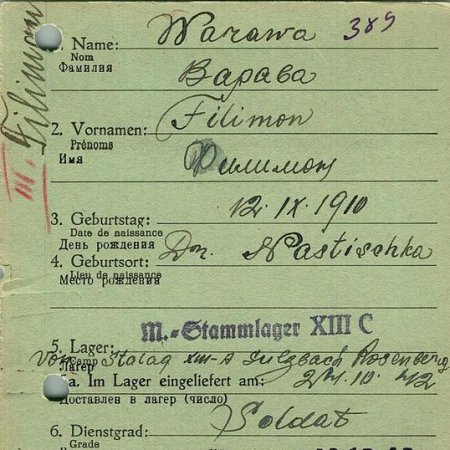 1. Name: Warawa 389
Nom
Фамилия
Варава
2. Vornamen: Filimon
Prénoms
Имя
Филимон
III. Filimon
3. Geburtstag: 12. IX. 1910
Date de naissance
День рождения
4. Geburtsort: Nastischka
Lieu de naissance
Место рождения
M.-Stammlager XIII C
5. Lager:
Camp
Лагерь
von Stalag XIII-A Sulzbach Rosenberg
a. Im Lager eingeliefert am: 10. 42
Доставлен в лагерь (число)
6. Dienstgrad: Soldat
Grade